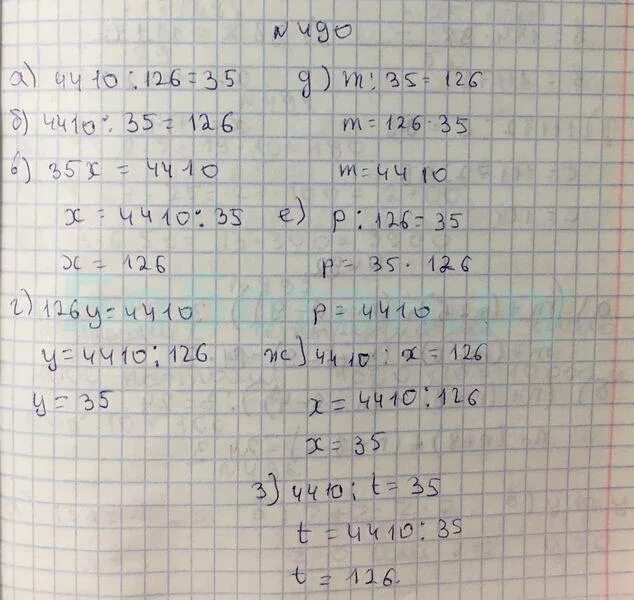 № 490
а) 4410 : 126 = 35
б) 4410 : 35 = 126
в) 35x = 4410
x = 4410 : 35
x = 126
г) 126y = 4410
y = 4410 : 126
y = 35
д) m : 35 = 126
m = 126 · 35
m = 4410
е) p : 126 = 35
p = 35 · 126
p = 4410
ж) 4410 : x = 126
x = 4410 : 126
x = 35
з) 4410 : t = 35
t = 4410 : 35
t = 126.